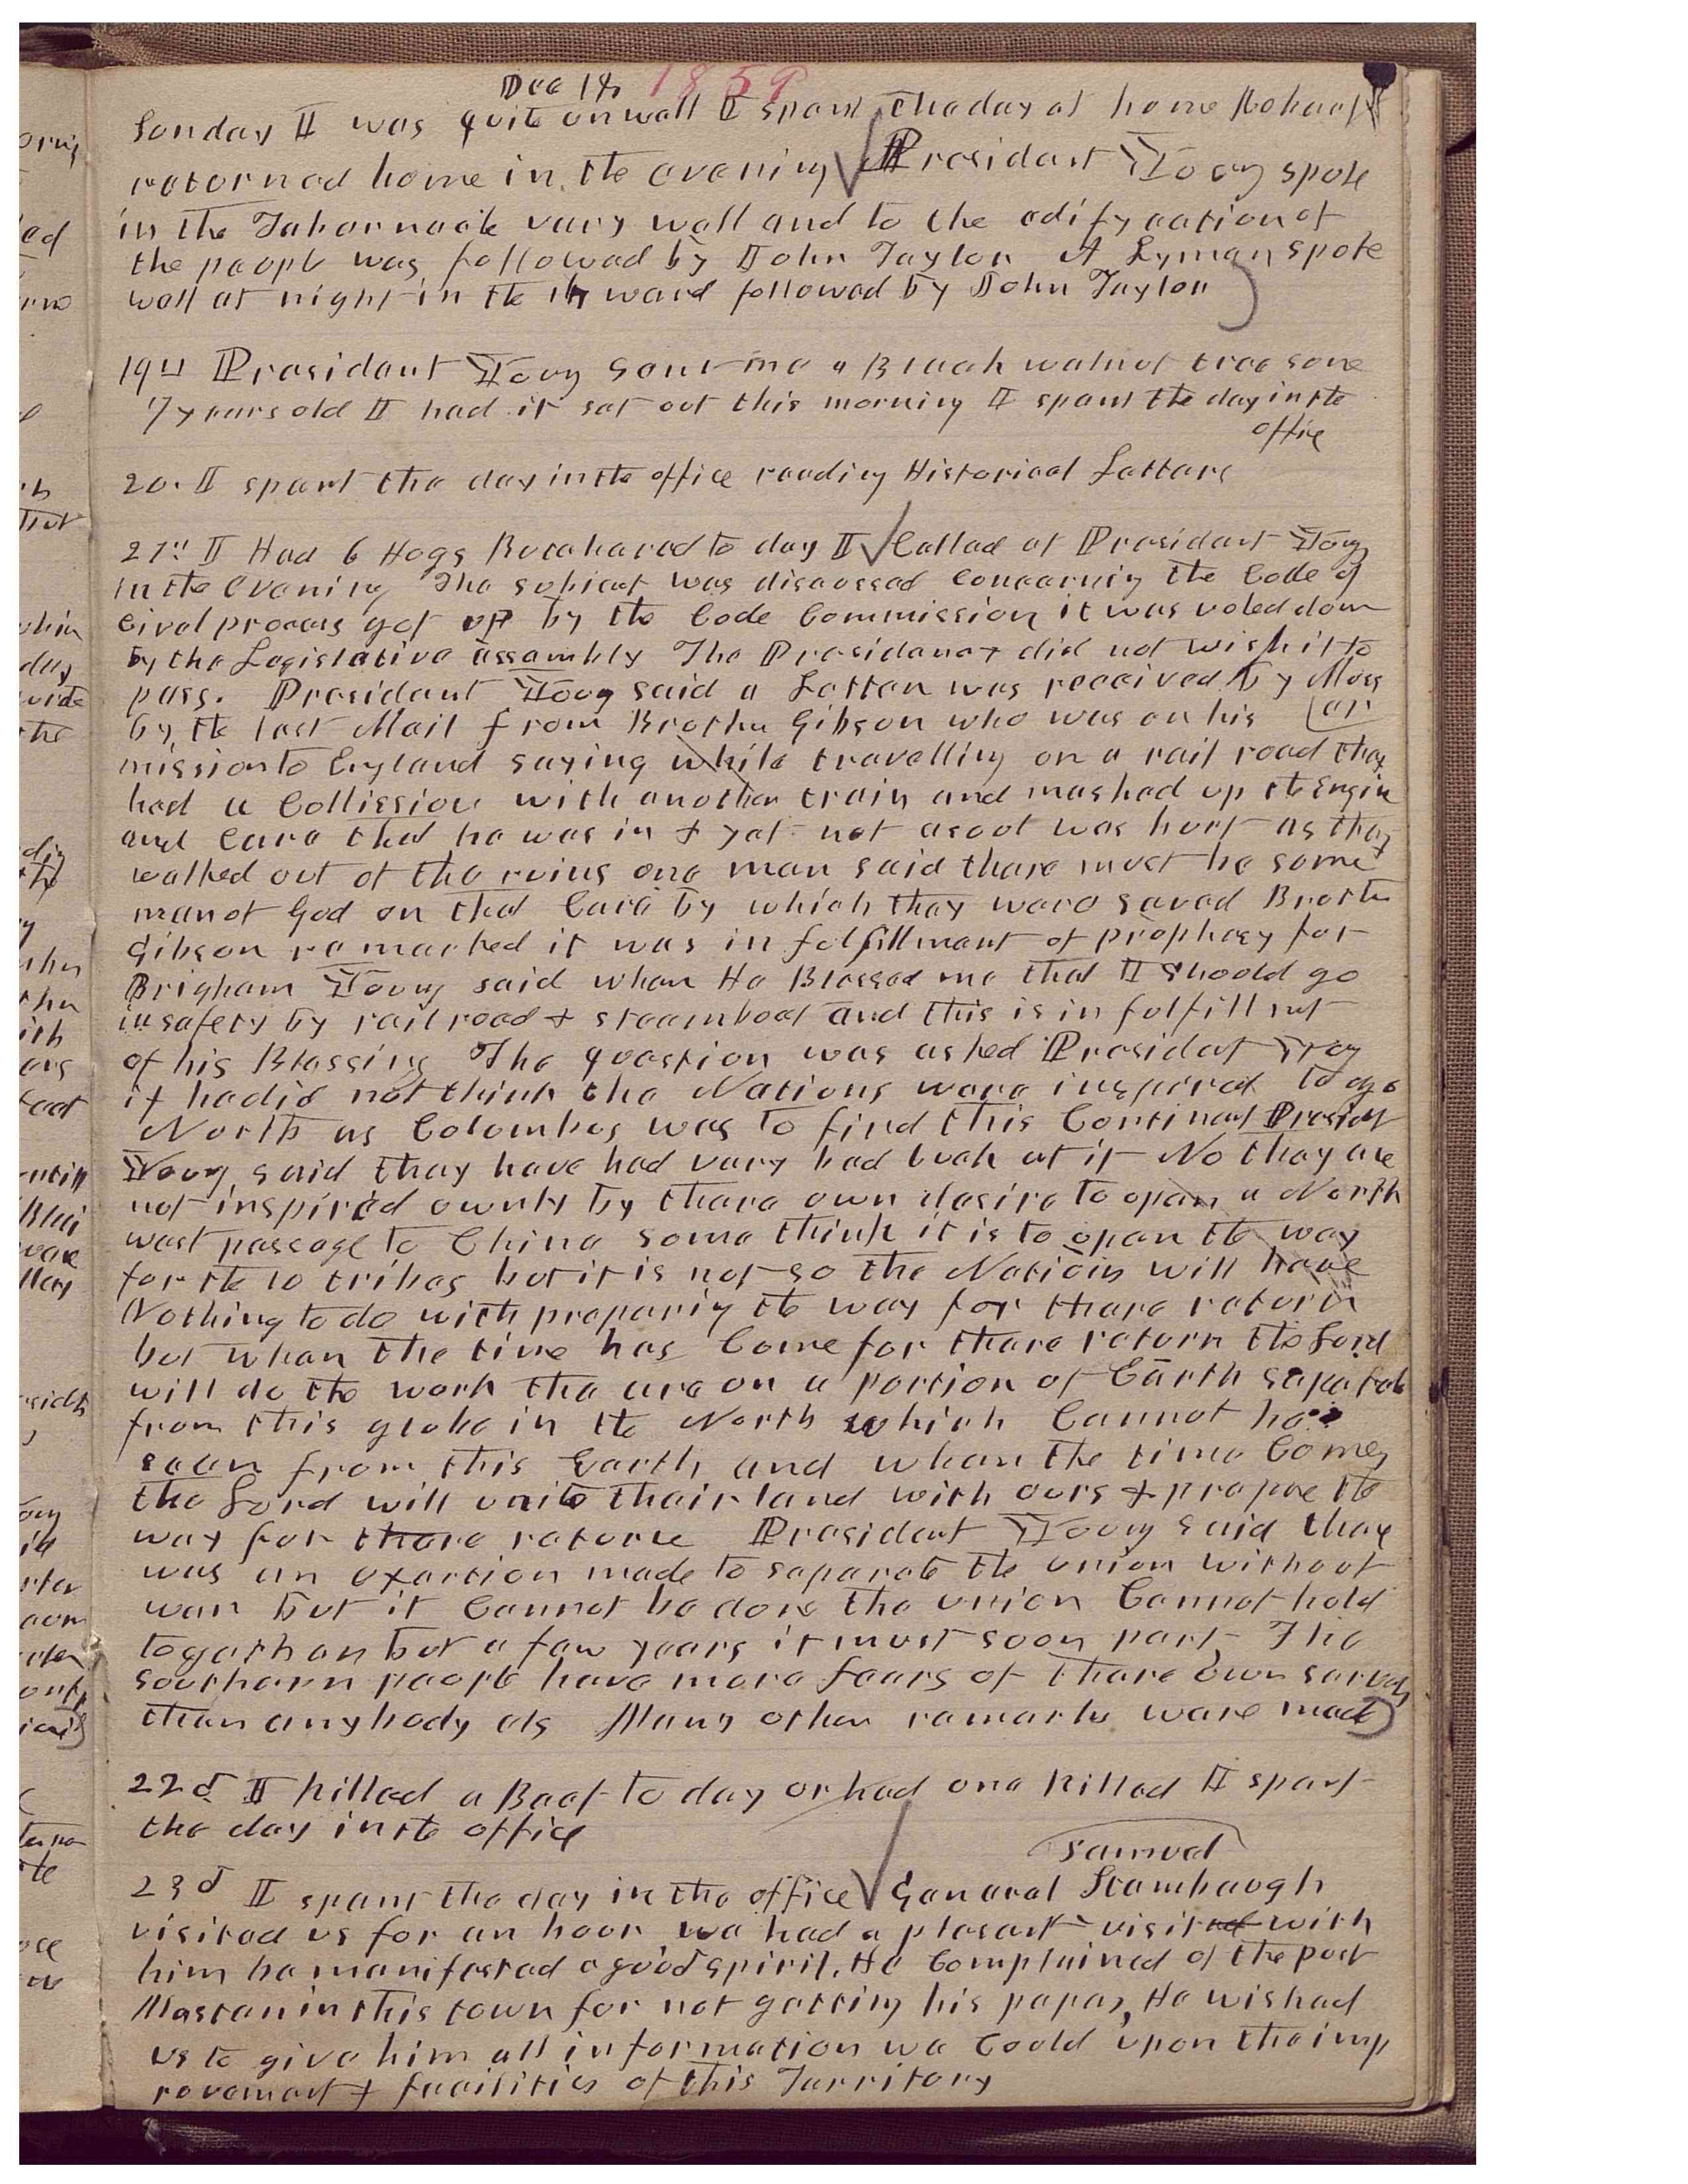 Dec 18, 1859
Sonday I was quite unwell I spent the day at home Phebe
returned home in the evening President Young spoke
in the Tabernacle very well and to the edifycation of
the people was followed by John Taylor A Lyman spoke
well at night in the 14 ward followed by John Taylor
19th President Young sent me a Black walnut tree some
7 years old I had it set out this morning I spent the day in the
office
20. I spent the day in the office reading Historical Letters
21st I Had 6 Hogs Butchered to day I Called at President Young
in the evening The subject was discussed concerning the Code of
civil process got up by the Code Commission it was voted down
by the Legislative assembly The Presidency did not wish it to
pass. President Young said a Letter was received by Moss
by the last Mail from Brother Gibson who was on his
mission to England saying while travelling on a rail road they
had a Collission with another train and mashed up the Engine
and Cars that he was in & yet not a soul was hurt as they
walked out of the ruins one man said there must be some
man of God on that Cars by which they were saved Brother
Gibson remarked it was in fulfillment of prophesy for
Brigham Young said when He Blessed me that I should go
in safety by rail road & steamboat and this is in fulfillmt
of his Blessing The question was asked President Young
if he did not think the Nations were inspired to go
North as Columbus was to find this Continant Presidet
Young said they have had very bad luck at it No they are
not inspired ownly by there own desire to open a North
west passage to China some think it is to open the way
for the 10 tribes but it is not so the Nations will have
Nothing to do with preparing the way for there return
but when the time has Come for there return the Lord
will do the work the are on a portion of Earth seperate
from this globe in the North which Cannot be
seen from this Earth and when the time Comes
the Lord will unite their land with ours & prepare the
way for there return President Young said there
was an exertion made to separate the union without
war but it Cannot be done the union Cannot hold
together but a few years it must soon part The
southern people have more fears of there own servts
than anybody els Many other remarks ware made
22d I killed a Beef to day or had one killed I spent
the day in the office
Samuel
23d I spent the day in the office General Stambaugh
visited us for an hour we had a plesant visit with
him he manifested a good spirit. He Complained of the post
Master in this town for not getting his paper, He wished
us to give him all information we Could upon the imp
rovement & facilities of this Territory